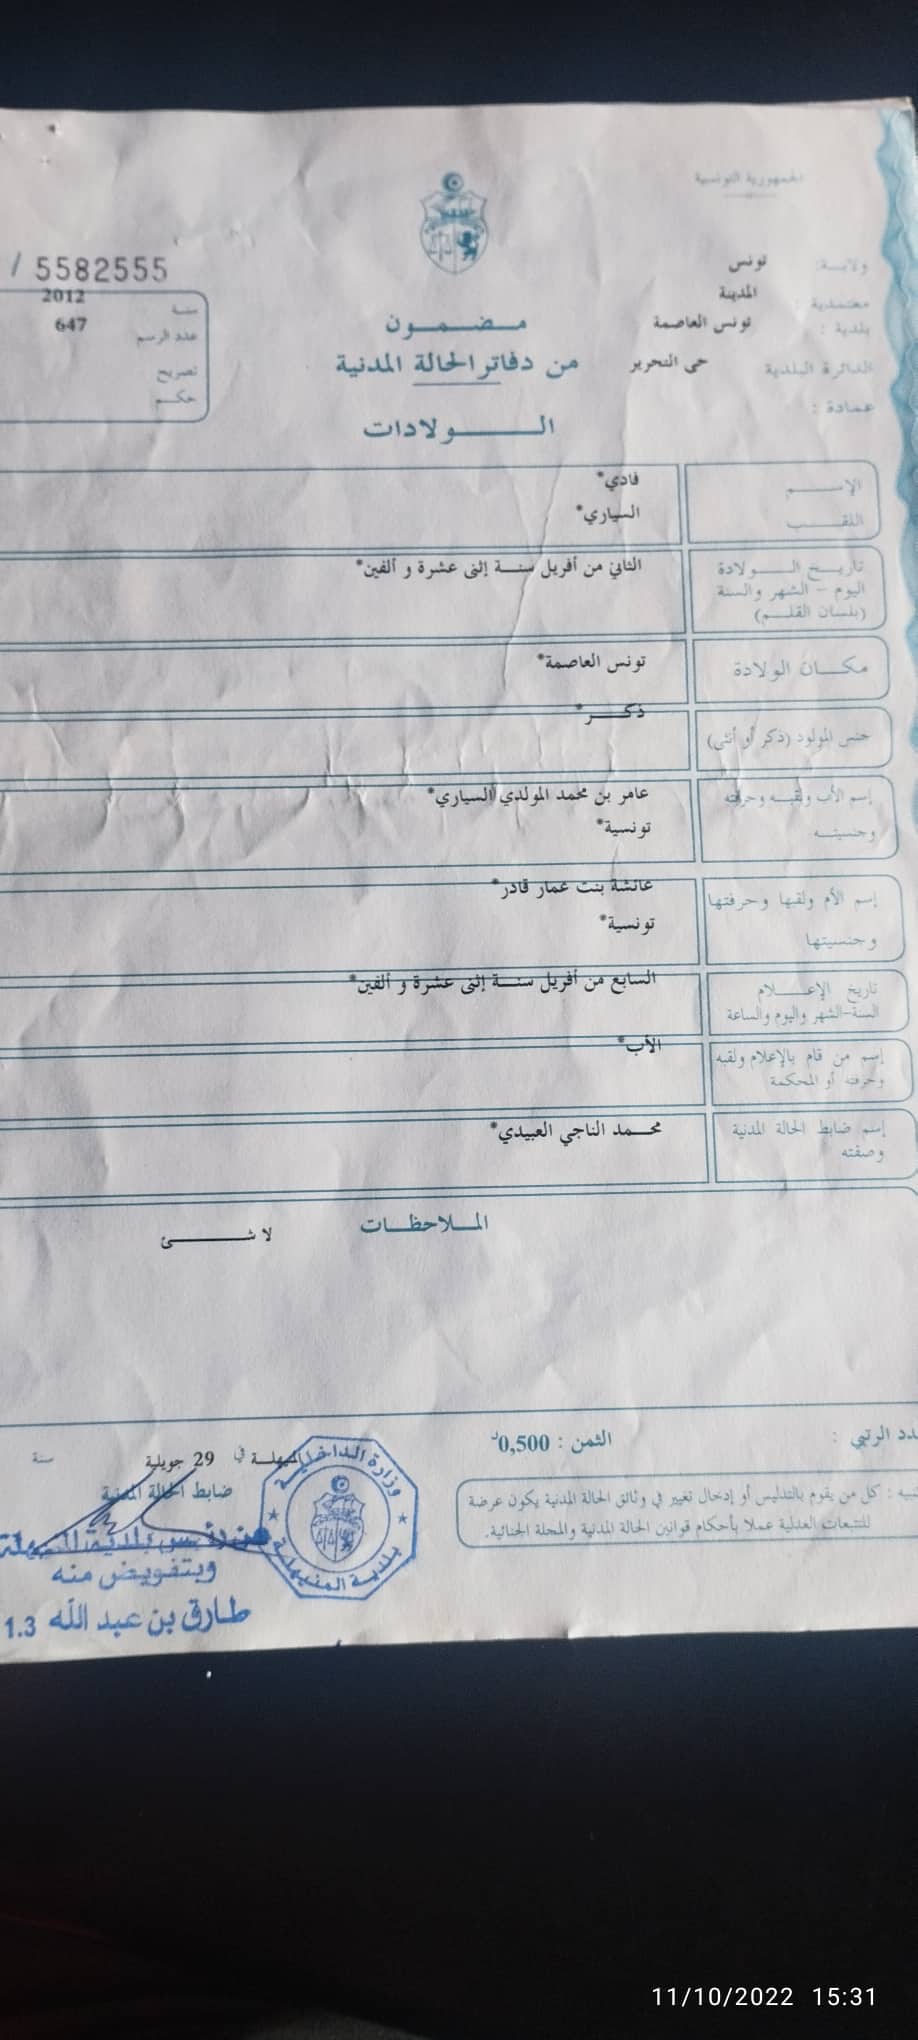 الجمهورية التونسية
ولاية: تونس
معتمدية : المدينة
بلدية : تونس العاصمة
الدائرة البلدية حي التحرير
عمادة :
/ 5582555
سنة 2012
عدد الرسم 647
تصريح
حكم
مضمون
من دفاتر الحالة المدنية
الولادات
الإسم فادي*
اللقب السياري*
تاريخ الولادة الثاني من أفريل سنة إثنى عشرة و ألفين*
اليوم - الشهر والسنة
(بلسان القلم)
مكان الولادة تونس العاصمة*
جنس المولود (ذكر أو أنثى) ذكر*
إسم الأب ولقبه وحرفته عامر بن محمد المولدي السياري*
وجنسيته تونسية*
إسم الأم ولقبها وحرفتها عائشة بنت عمار قادر*
وجنسيتها تونسية*
تاريخ الإعلام السابع من أفريل سنة إثنى عشرة و ألفين*
السنة-الشهر واليوم والساعة
إسم من قام بالإعلام ولقبه الأب*
وحرفته أو المحكمة
إسم ضابط الحالة المدنية محمد الناجي العبيدي*
وصفته
الملاحظات
لا شئ
الرتبي :
الثمن : 0,500
كل من يقوم بالتدليس أو إدخال تغيير في وثائق الحالة المدنية يكون عرضة
للتتبعات العدلية عملا بأحكام قوانين الحالة المدنية والمجلة الجنائية.
في 29 جويلية سنة
ضابط الحالة المدنية
وزارة الداخلية
بلدية المنيهلة
عن رئيس بلدية المنيهلة
وبتفويض منه
طارق بن عبد الله 1.3
11/10/2022 15:31